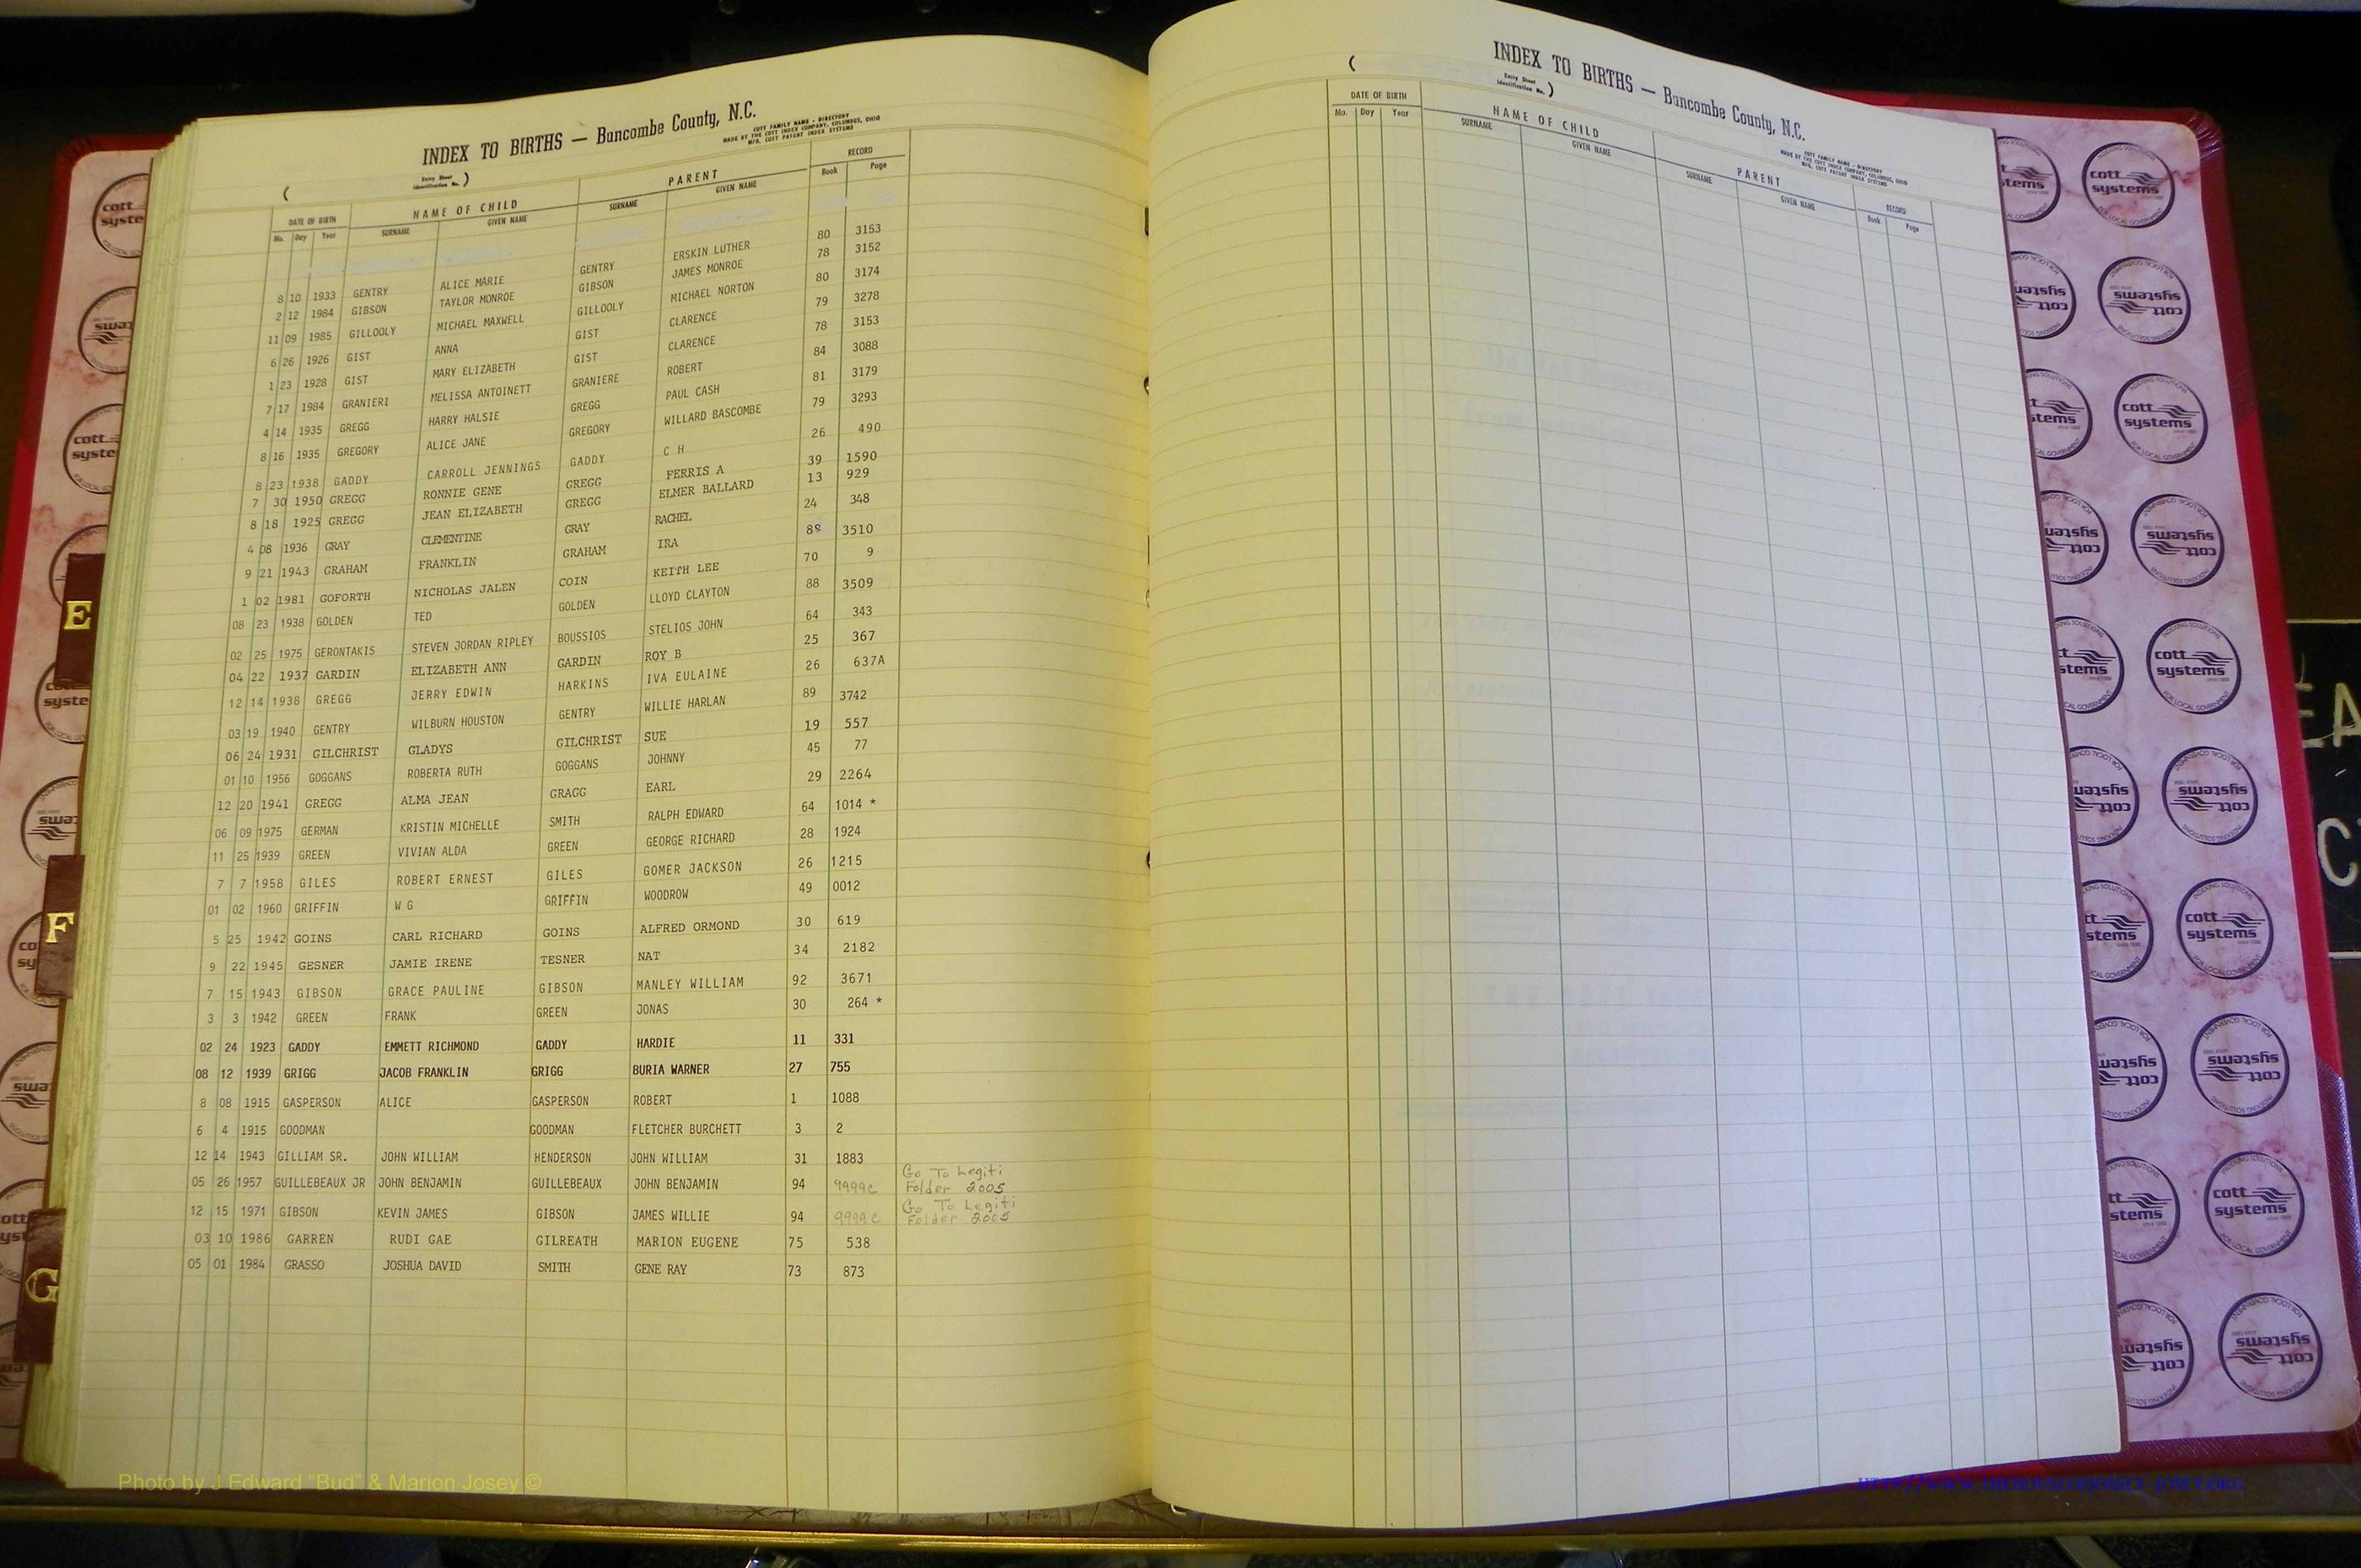 INDEX TO BIRTHS — Buncombe County, N.C.
COTT FAMILY NAME - DIRECTORY
MADE BY THE COTT INDEX COMPANY, COLUMBUS, OHIO
MFG. COTT PATENT INDEX SYSTEMS
( Entry Sheet Identification No. )
DATE OF BIRTH NAME OF CHILD PARENT RECORD
Mo. Day Year SURNAME GIVEN NAME SURNAME GIVEN NAME Book Page
8 10 1933 GENTRY ALICE MARIE GENTRY ERSKIN LUTHER 80 3153
2 12 1984 GIBSON TAYLOR MONROE GIBSON JAMES MONROE 78 3152
11 09 1985 GILLOOLY MICHAEL MAXWELL GILLOOLY MICHAEL NORTON 80 3174
6 26 1926 GIST ANNA GIST CLARENCE 79 3278
1 23 1928 GIST MARY ELIZABETH GIST CLARENCE 78 3153
7 17 1984 GRANIERI MELISSA ANTOINETT GRANIERE ROBERT 84 3088
4 14 1935 GREGG HARRY HALSIE GREGG PAUL CASH 81 3179
8 16 1935 GREGORY ALICE JANE GREGORY WILLARD BASCOMBE 79 3293
8 23 1938 GADDY CARROLL JENNINGS GADDY C H 26 490
7 30 1950 GREGG RONNIE GENE GREGG FERRIS A 39 1590
8 18 1925 GREGG JEAN ELIZABETH GREGG ELMER BALLARD 13 929
4 08 1936 GRAY CLEMENTINE GRAY RACHEL 24 348
9 21 1943 GRAHAM FRANKLIN GRAHAM IRA 88 3510
1 02 1981 GOFORTH NICHOLAS JALEN COIN KEITH LEE 70 9
08 23 1938 GOLDEN TED GOLDEN LLOYD CLAYTON 88 3509
02 25 1975 GERONTAKIS STEVEN JORDAN RIPLEY BOUSSIOS STELIOS JOHN 64 343
04 22 1937 GARDIN ELIZABETH ANN GARDIN ROY B 25 367
12 14 1938 GREGG JERRY EDWIN HARKINS IVA EULAINE 26 637A
03 19 1940 GENTRY WILBURN HOUSTON GENTRY WILLIE HARLAN 89 3742
06 24 1931 GILCHRIST GLADYS GILCHRIST SUE 19 557
01 10 1956 GOGGANS ROBERTA RUTH GOGGANS JOHNNY 45 77
12 20 1941 GREGG ALMA JEAN GRAGG EARL 29 2264
06 09 1975 GERMAN KRISTIN MICHELLE SMITH RALPH EDWARD 64 1014 *
11 25 1939 GREEN VIVIAN ALDA GREEN GEORGE RICHARD 28 1924
7 7 1958 GILES ROBERT ERNEST GILES GOMER JACKSON 26 1215
01 02 1960 GRIFFIN W G GRIFFIN WOODROW 49 0012
5 25 1942 GOINS CARL RICHARD GOINS ALFRED ORMOND 30 619
9 22 1945 GESNER JAMIE IRENE TESNER NAT 34 2182
7 15 1943 GIBSON GRACE PAULINE GIBSON MANLEY WILLIAM 92 3671
3 3 1942 GREEN FRANK GREEN JONAS 30 264 *
02 24 1923 GADDY EMMETT RICHMOND GADDY HARDIE 11 331
08 12 1939 GRIGG JACOB FRANKLIN GRIGG BURIA WARNER 27 755
8 08 1915 GASPERSON ALICE GASPERSON ROBERT 1 1088
6 4 1915 GOODMAN GOODMAN FLETCHER BURCHETT 3 2
12 14 1943 GILLIAM SR. JOHN WILLIAM HENDERSON JOHN WILLIAM 31 1883
05 26 1957 GUILLEBEAUX JR JOHN BENJAMIN GUILLEBEAUX JOHN BENJAMIN 94 9999c Go To Legiti
Folder 2005
12 15 1971 GIBSON KEVIN JAMES GIBSON JAMES WILLIE 94 9999c Go To Legiti
Folder 2005
03 10 1986 GARREN RUDI GAE GILREATH MARION EUGENE 75 538
05 01 1984 GRASSO JOSHUA DAVID SMITH GENE RAY 73 873
INDEX TO BIRTHS — Buncombe County, N.C.
COTT FAMILY NAME - DIRECTORY
MADE BY THE COTT INDEX COMPANY, COLUMBUS, OHIO
MFG. COTT PATENT INDEX SYSTEMS
( Entry Sheet Identification No. )
DATE OF BIRTH NAME OF CHILD PARENT RECORD
Mo. Day Year SURNAME GIVEN NAME SURNAME GIVEN NAME Book Page
E
F
G
cott systems
INDEXING SOLUTIONS
FOR LOCAL GOVERNMENT
Photo by J Edward “Bud” & Marion Josey ©
HTTP://WWW.THEHOUSEOFJOSSEY-JOSEY.ORG